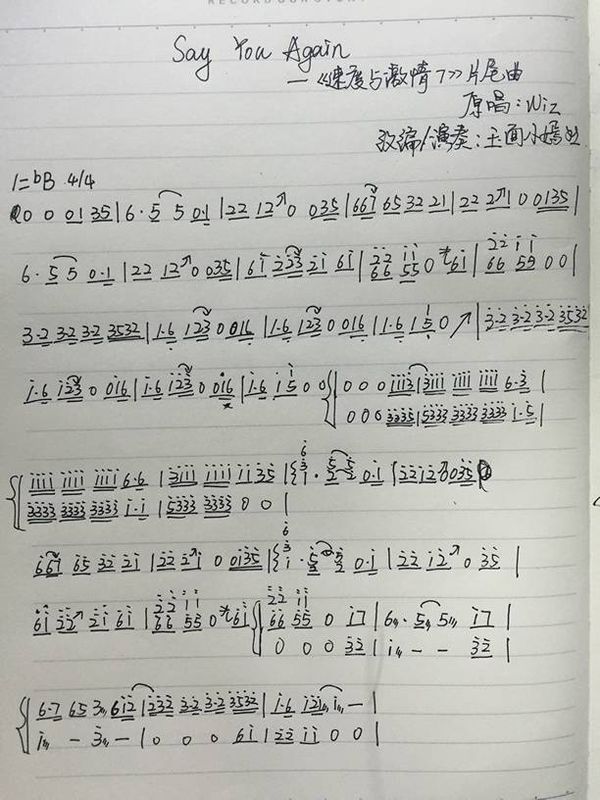 Say You Again
—《速度与激情7》片尾曲
原唱:Wiz
改编/演奏:玉面小嫣然
1=bB 4/4
0 0 01 35 | 6· 5 5 01 | 22 12 0 035 | 661 65 32 21 | 22 21 0 0135 |
6· 5 5 0·1 | 22 12 0 035 | 61 223 21 61 | 22 11 0 61 | 22 11 0 0 |
66 55 66 55
3·2 3·2 3·2 3532 | 1·6 123 0 016 | 1·6 123 0 016 | 1·6 1 5 0 | 3·2 3·2 3·2 3532
1·6 123 0 016 | 1·6 123 0 016 | 1·6 1 5 0 0 | 0 0 0 1113 | 3111 1111 1111 6·3 |
0 0 0 3335 | 5333 3333 3333 1·5 |
1111 1111 1111 6·6 | 3111 1111 11 35 |
3333 3333 3333 1·1 | 5333 3333 0 0 |
65 32 21 | 22 21 0 0135 |
0·1 | 22 12 0 35 |
61 22 21 61 | 22 11 0 61 | 22 11 0 17 | 6 · 5 5 17 |
66 55 66 55
0 0 0 32 | 1 - - 32 |
6·7 65 3 612 | 232 3·2 3·2 3532 | 1·6 121 1 - |
1 - 3 - | 0 0 0 61 | 22 11 0 0 |